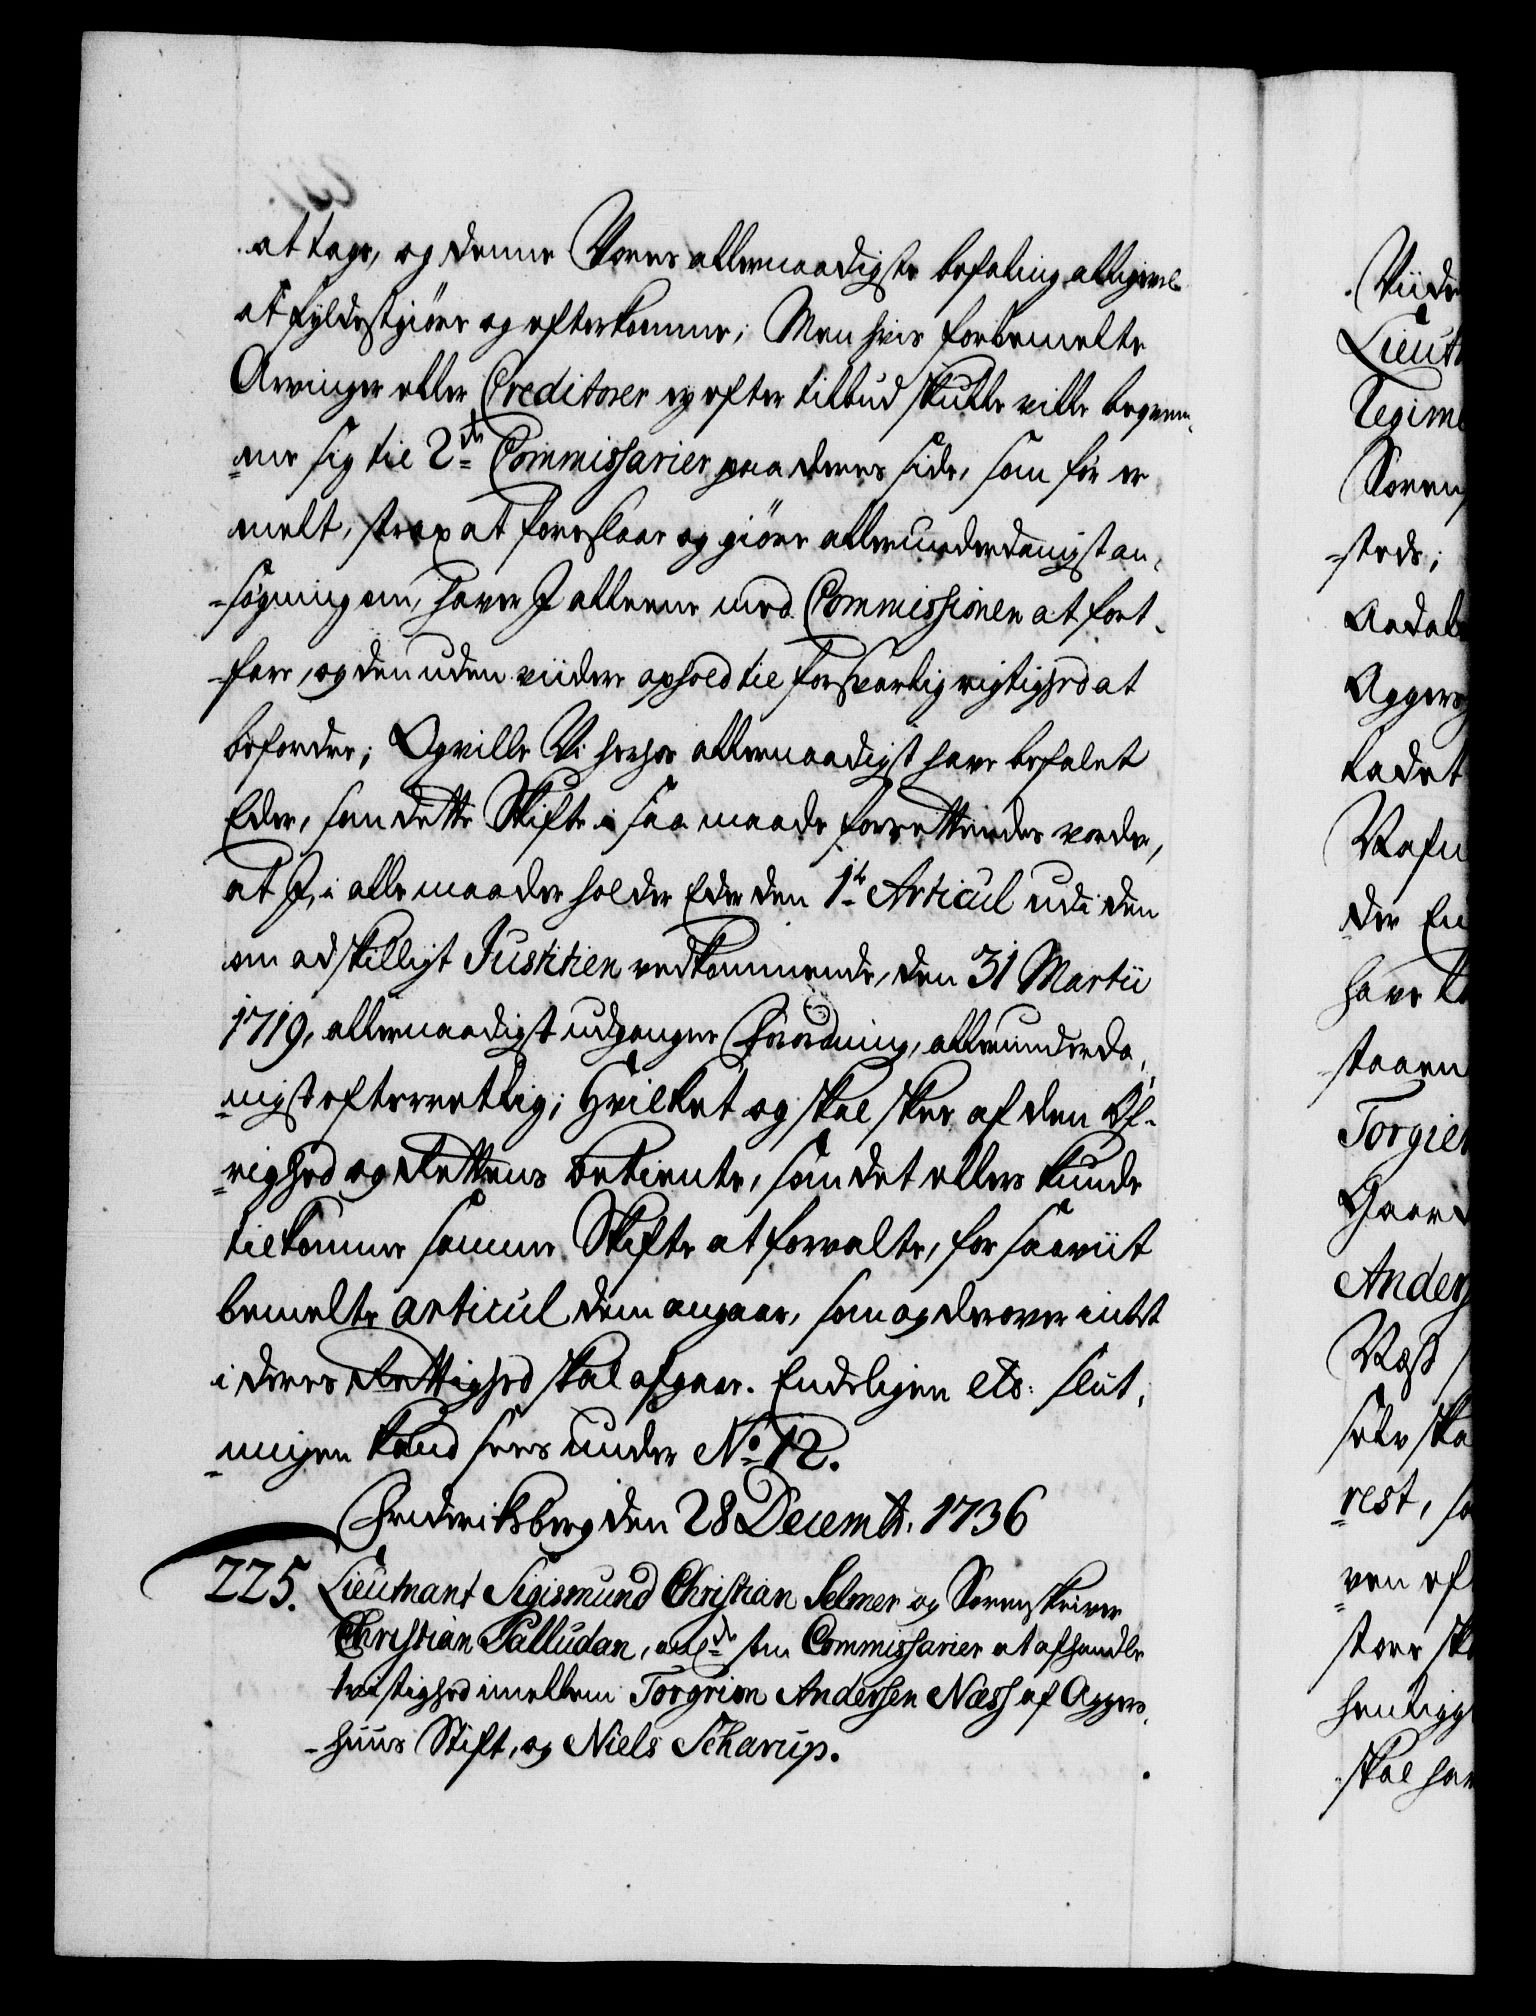 at tage, og denne Vores allernaadigste befaling alligevel
at fyldestgiøre og efterkomme; Men hvis forbemelte
Arvinger eller Creditorer ey efter tilbud skulle ville beqvem-
me sig til 2de Commissarier paa deres side, som før er
melt, strax at foreslaae og giøre allerunderdanigst an-
søgning om, haver I alleene med Commissionen at fort-
fare, og den uden viidere ophold til forsvarlig rigtighed at
befordre; Og ville Vi herhos allernaadigst have befalet
Eder, som dette Skifte i saa maade forrettendes vorder,
at I, i alle maader holder Eder den 1te Articul udi den
om adskilligt Justitien vedkommende, den 31 Martii
1719, allernaadigst udgangne Forordning, allerunderda-
nigst efterrettlig; Hvilket og skal skee af den Øf-
righed og Rettens betiente, som det ellers kunde
tilkomme samme Skifte at forvalte, for saaviit
bemelte Articul dem angaaer, som og derover intet
i deres Rettighed skal afgaae. Endeligen etc: slut-
ningen kand sees under No 12.
Friderichsberg den 28 Decembr. 1736
225. Lieutnant Sigismund Christian Selmer og Sorenskriver
Christian Palludan, anlde som Commissarier at afhandle
tvistighed imellem Torgrim Andersen Næss af Agger-
huus Stift, og Niels Scharup.
Viide
Lieut
Regime
Soren
steds;
Aadals
Aggers
ladet
Rafn
der En
have
staaen
Torgie
Gaard
Anders
Næss
selv ska
rest, so
ven ef
store sk
henligge
skal hav